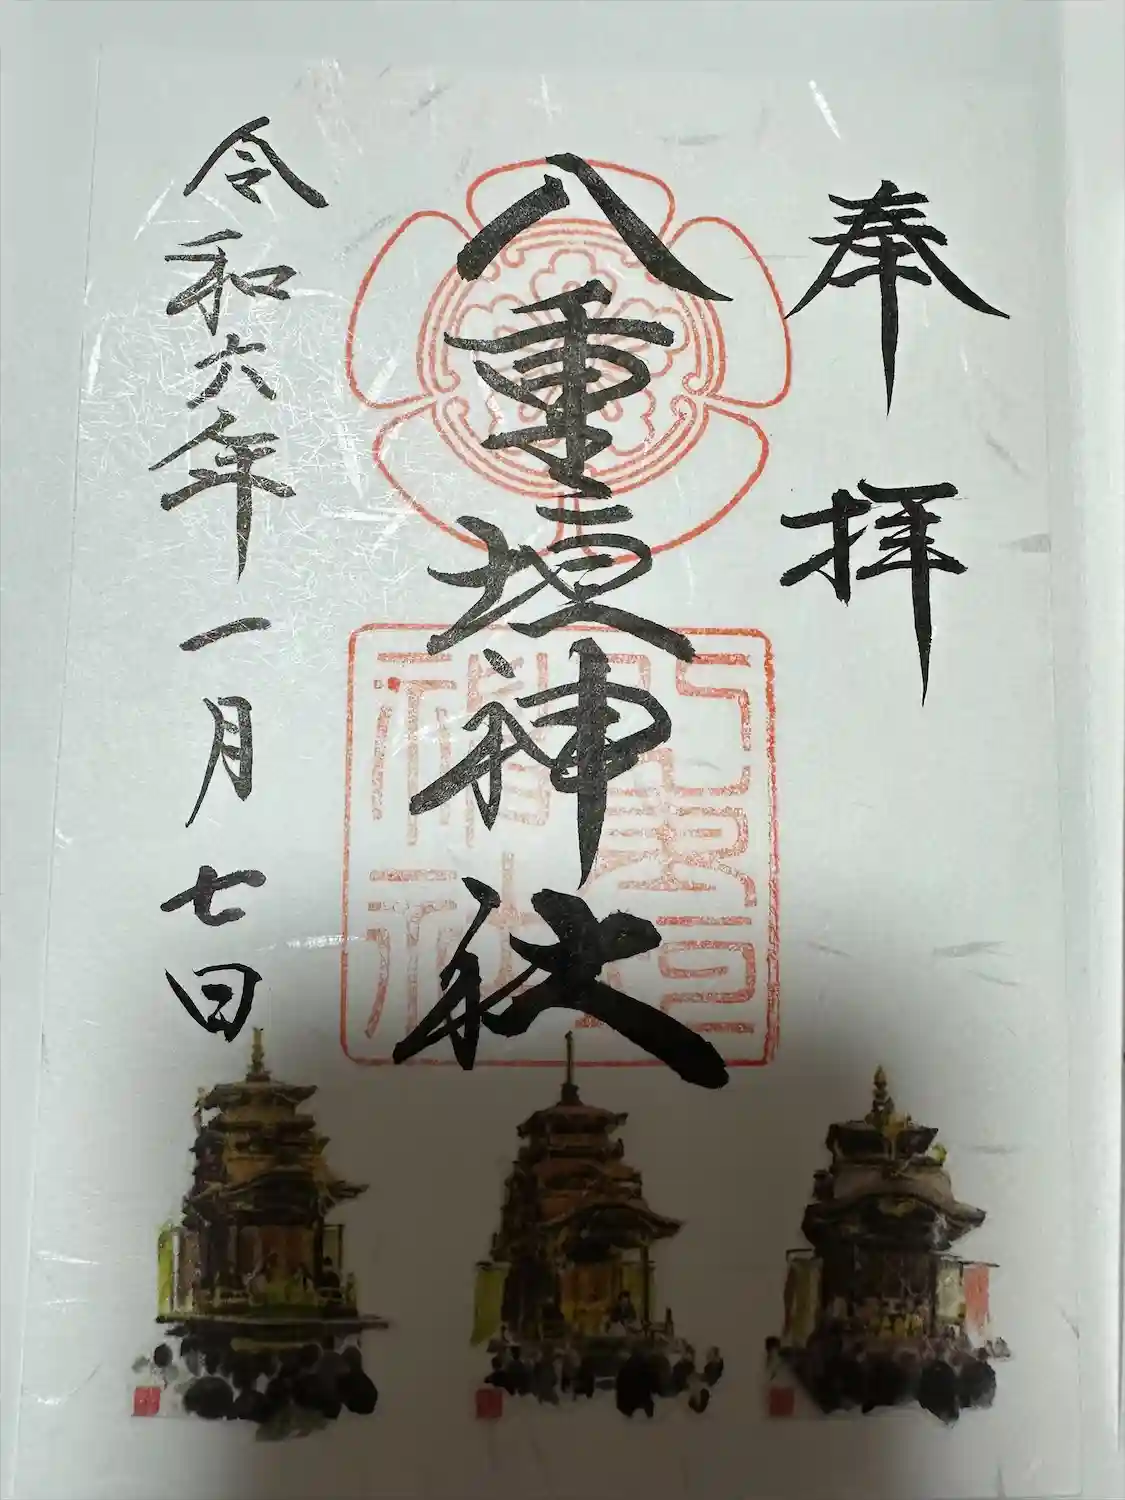 奉拝
八重垣神社
八重垣神社
令和六年一月七日